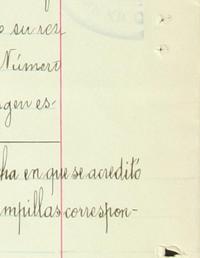 su rez
Número
gen es-
ha en que se acreditó
mpillas correspon-